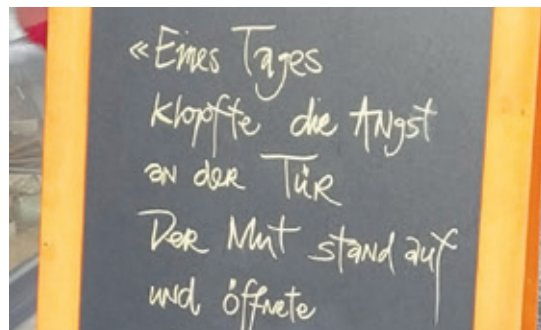 «Eines Tages
klopfte die Angst
an der Tür
Der Mut stand auf
und öffnete